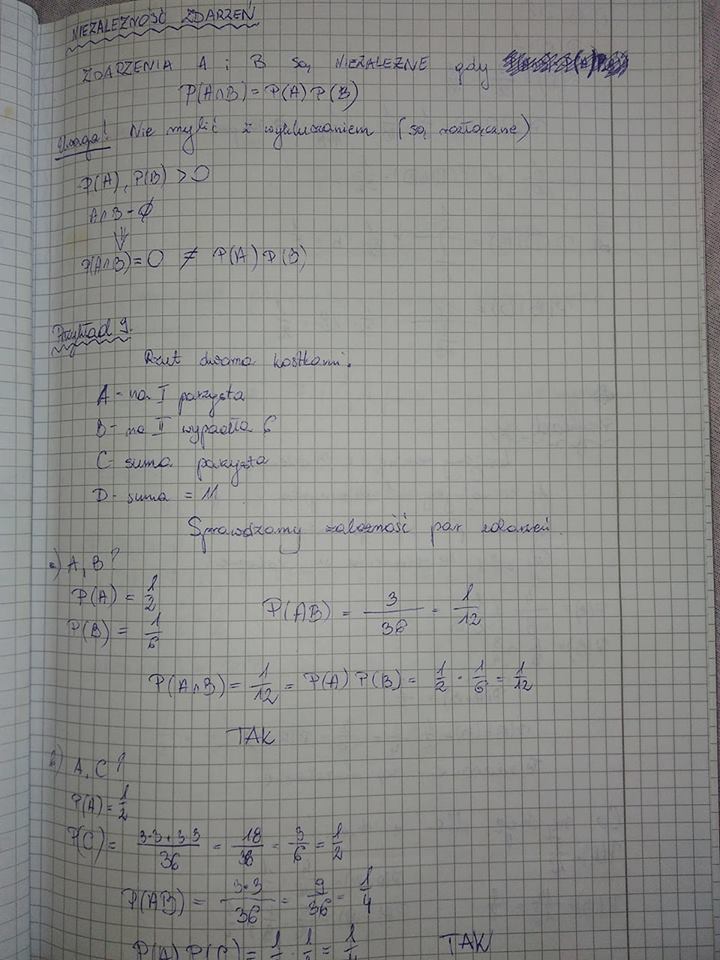 NIEZALEŻNOŚĆ ZDARZEŃ
ZDARZENIA A i B są NIEZALEŻNE gdy
P(A∩B) = P(A) P(B)
Uwaga! Nie mylić z wykluczaniem (są rozłączne)
P(A), P(B) > 0
A∩B = ∅
⇓
P(A∩B) = 0 ≠ P(A) P(B)
Przykład 9.
Rzut dwoma kostkami.
A - na I parzysta
B - na II wypadła 6
C - suma parzysta
D - suma = 11
Sprawdzamy zależność par zdarzeń.
a) A, B?
P(A) = 1/2
P(B) = 1/6
P(AB) = 3/36 = 1/12
P(A∩B) = 1/12 = P(A) P(B) = 1/2 · 1/6 = 1/12
TAK
b) A, C?
P(A) = 1/2
P(C) = 3·3+3·3/36 = 18/38 = 3/6 = 1/2
P(AB) = 3·3/36 = 9/36 = 1/4
P(A) P(C) = 1/2 · 1/2 = 1/4 TAK